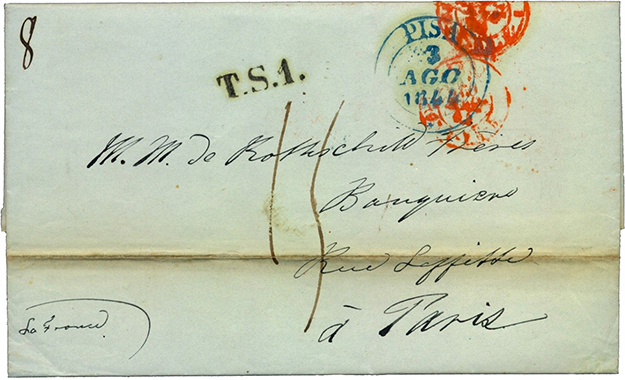 8
T.S.1.
PISA
3
AGO
1844
15
M. M. de Rothschild Frères
Banquiers
Rue Laffitte
à Paris
La France